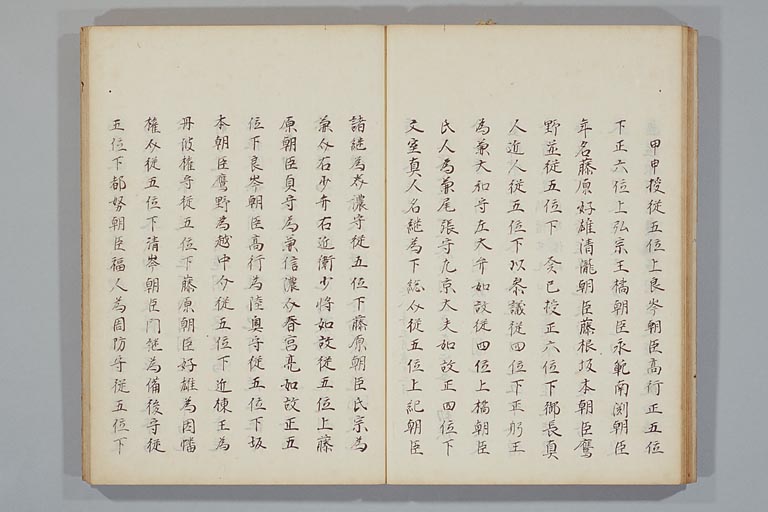 甲申授從五位上良岑朝臣高行正五位
下正六位上弘宗王橘朝臣永範南渕朝臣
年名藤原好雄清瀧朝臣藤根坂本朝臣鷹
野並從五位下癸巳授正六位下御長真
人近人從五位下以參議從四位下正躬王
為兼大和守左大弁如故從四位上橘朝臣
氏人為兼尾張守右京大夫如故正四位下
文室真人名継為下総介從五位上紀朝臣
諸継為美濃守從五位下藤原朝臣氏宗為
兼介右少弁右近衛少将如故從五位上藤
原朝臣貞守為兼信濃介春宮亮如故正五
位下良岑朝臣高行為陸奥守從五位下坂
本朝臣鷹野為越中介從五位下近棟王為
丹波権守從五位下藤原朝臣好雄為因幡
権介從五位下清岑朝臣門継為備後守從
五位下都努朝臣福人為周防守從五位下